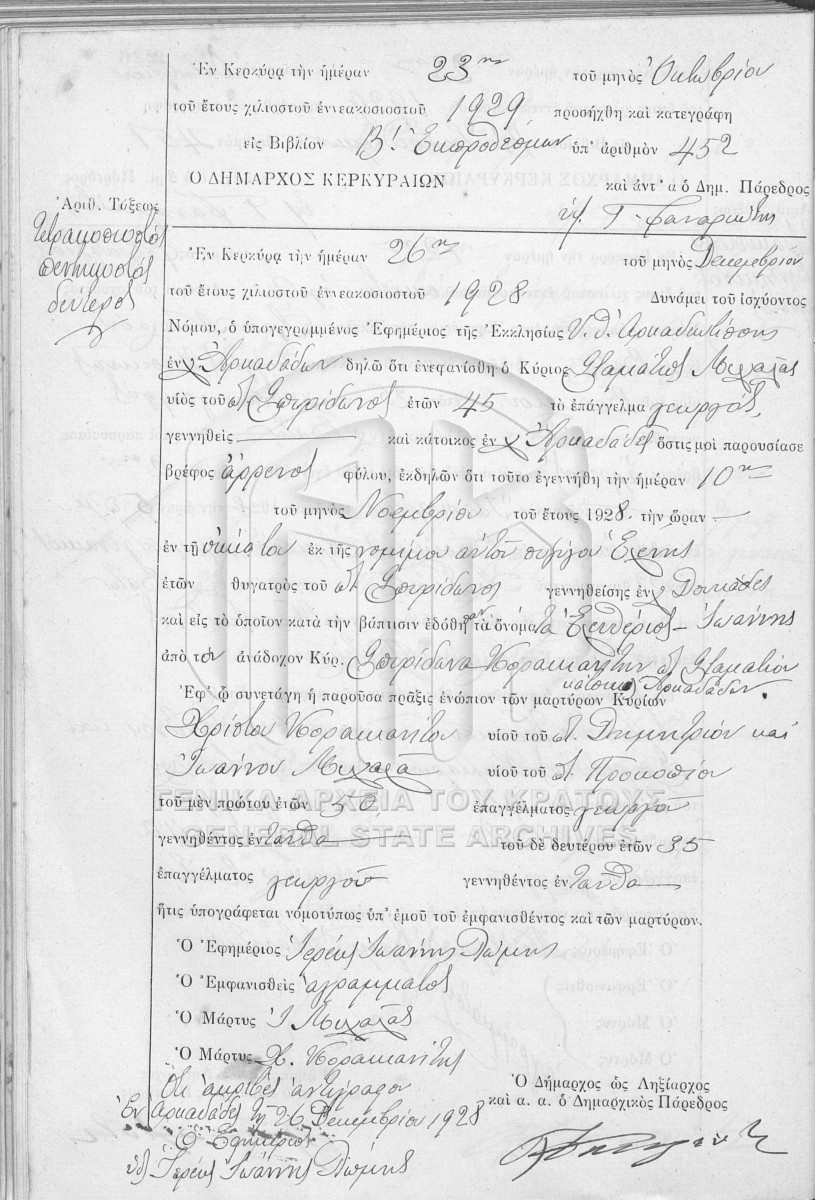 Ἐν Κερκύρᾳ τὴν ἡμέραν 23ην τοῦ μηνὸς Ὀκτωβρίου
τοῦ ἔτους χιλιοστοῦ ἐννεακοσιοστοῦ 1929 προσήχθη καὶ κατεγράφη
εἰς Βιβλίον Β! Ἐκπροθέσμων ὑπ' ἀριθμὸν 452
Ο ΔΗΜΑΡΧΟΣ ΚΕΡΚΥΡΑΙΩΝ καὶ ἀντ' α ὁ Δημ. Πάρεδρος
Ἀριθ. Τάξεως
Τετρακοσιοστός
πεντηκοστός
δεύτερος
Ἐν Κερκύρᾳ τὴν ἡμέραν 26ην τοῦ μηνὸς Δεκεμβρίου
τοῦ ἔτους χιλιοστοῦ ἐννεακοσιοστοῦ 1928 Δυνάμει τοῦ ἰσχύοντος
Νόμου, ὁ ὑπογεγραμμένος Ἐφημέριος τῆς Ἐκκλησίας Υ. Θ.
ἐν χ Ἀρκαδάδων δηλῶ ὅτι ἐνεφανίσθη ὁ Κύριος Σταμάτιος
υἱὸς τοῦ Σπυρίδωνος ἐτῶν 45 τὸ ἐπάγγελμα γεωργός,
γεννηθεὶς καὶ κάτοικος ἐν χ Ἀρκαδάδες ὅστις μοὶ παρουσίασε
βρέφος ἄρρενος φύλου, ἐκδηλῶν ὅτι τοῦτο ἐγεννήθη τὴν ἡμέραν 10ην
τοῦ μηνὸς Νοεμβρίου τοῦ ἔτους 1928 τὴν ὥραν
ἐν τῇ οἰκίᾳ του ἐκ τῆς νομίμου αὐτοῦ συζύγου Ἑλένης
ἐτῶν θυγατρὸς τοῦ Σπυρίδωνος γεννηθείσης ἐν χ Δουκάδες
καὶ εἰς τὸ ὁποῖον κατὰ τὴν βάπτισιν ἐδόθησαν τὰ ὀνόματα Ἐλευθέριος - Ἰωάννης
ἀπὸ τὸν ἀνάδοχον Κύρ. Σπυρίδωνα Σταματίου
κάτοικον Ἀρκαδάδων.
Ἐφ' ᾧ συνετάγη ἡ παροῦσα πρᾶξις ἐνώπιον τῶν μαρτύρων Κυρίων
Χρίστου υἱοῦ τοῦ Δημητρίου καὶ
Ἰωάννου υἱοῦ τοῦ Προκοπίου
ΓΕΝΙΚΑ ΑΡΧΕΙΑ ΤΟΥ ΚΡΑΤΟΥΣ
τοῦ μὲν πρώτου ἐτῶν 50 ἐπαγγέλματος γεωργοῦ
GENERAL STATE ARCHIVES
γεννηθέντος ἐνταῦθα τοῦ δὲ δευτέρου ἐτῶν 35
ἐπαγγέλματος γεωργοῦ γεννηθέντος ἐνταῦθα
ἥτις ὑπογράφεται νομοτύπως ὑπ' ἐμοῦ τοῦ ἐμφανισθέντος καὶ τῶν μαρτύρων.
Ὁ Ἐφημέριος Ἱερεὺς Ἰωάννης
Ὁ Ἐμφανισθεὶς ἀγράμματος
Ὁ Μάρτυς Ι
Ὁ Μάρτυς Χ.
Ὅτι ἀκριβὲς ἀντίγραφον
Ἐν Ἀρκαδάδες τῇ 26 Δεκεμβρίου 1928
Ὁ Ἐφημέριος
Ἱερεὺς Ἰωάννης
Ὁ Δήμαρχος ὡς Ληξίαρχος
καὶ α. α. ὁ Δημαρχικὸς Πάρεδρος